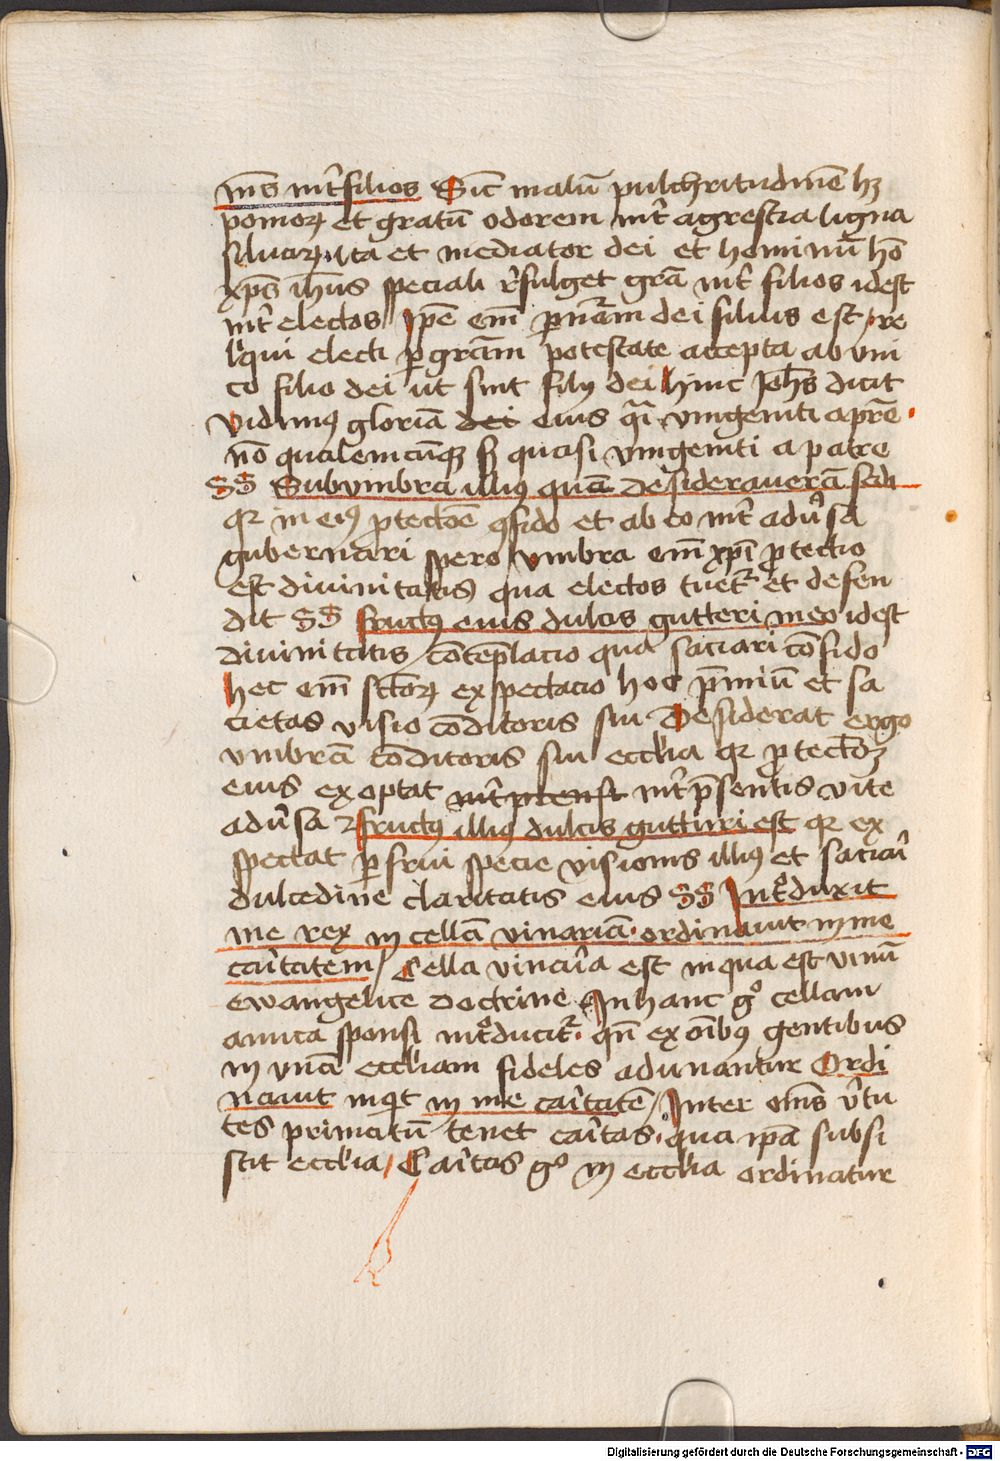 me̅s int̉ filios Sic̅ malu̅ pulchritudine̅ hꝫ
pomoꝝ et gratu̅ odorem int̉ agrestia ligna
siluaꝝ ita et mediator dei et hominu̅ ho̅
xp̅s ih̅us speciali r̉fulget gr̅a int̉ filios idest
int̉ electos Ip̅e em̅ ꝑ nat̅am dei filius est re
lˈqui electi ꝑ gr̅am potestate accepta ab vni
co filio dei ut sint filij dei hinc Joh̅s dicit
vidimꝰ gloria̅ dei eius qͣi vnigeniti a pr̅e
no̅ qualemcu̅qꝫ sꝫ quasi vnigeniti a patre
SS Sub vmbra illiꝰ qua̅ desideravera̅ sedi
qꝛ in eiꝰ ꝓtecto̅e ꝯfido et ab eo int̉ adu̓sa
gubernari spero vmbra em̅ xp̅i ꝓtectio
est diuinitatis qua electos tuetᷣ et defen
dit SS fructꝰ eius dulcis gutteri meo idest
diuinitatis co̅te̅placio qua saciari co̅fido
hec em̅ sc̅toꝝ expectacio hoc p̅miu̅ et sa
cietas visio co̅ditoris sui Desiderat ergo
vmbra̅ co̅ditoris sui eccl̉ia qꝛ ꝓtecto̅eꝫ
eius exoptat int̉ p̅sentis vite
adu̓sa ⁊ fructꝰ illiꝰ dulcis gutturi est qꝛ ex
spectat ꝑfrui specie visionis illiꝰ et saciari̓
dulcedine claritatis eius SS Int̊duxit
me rex in cella̅ vinaria̅ ordinauit in me
cari̓tatem Cella vinari̓a est in qua est vinu̅
ewangelice doctrine In hanc gͦ cellam
amica sponsi int̊ducitᷣ qn̅ ex oi̅bꝰ gentibus
in vna̅ eccl̉iam fideles adunantur Ordi
nauit inqͥt in me cari̓tate̅ Inter om̅s v̓tu
tes primatu̅ tenet cari̓tas qua ip̅a subsi
stit eccl̉ia Cari̓tas gͦ in eccl̉ia ordinatur
Digitalisierung gefördert durch die Deutsche Forschungsgemeinschaft - DFG